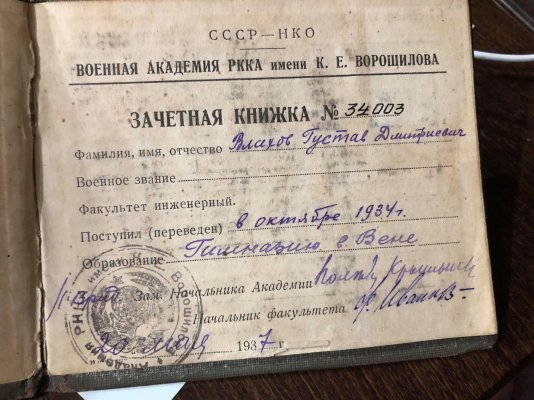 СССР—НКО
ВОЕННАЯ АКАДЕМИЯ РККА имени К. Е. ВОРОШИЛОВА
ЗАЧЕТНАЯ КНИЖКА № 34003
Фамилия, имя, отчество Влахов Густав Дмитриевич
Военное звание
Факультет инженерный.
Поступил (переведен) в октябре 1934 г.
Образование Гимназию в Вене
Врид. Зам. Начальника Академии
Начальник факультета Иванов
"20" мая 1937 г